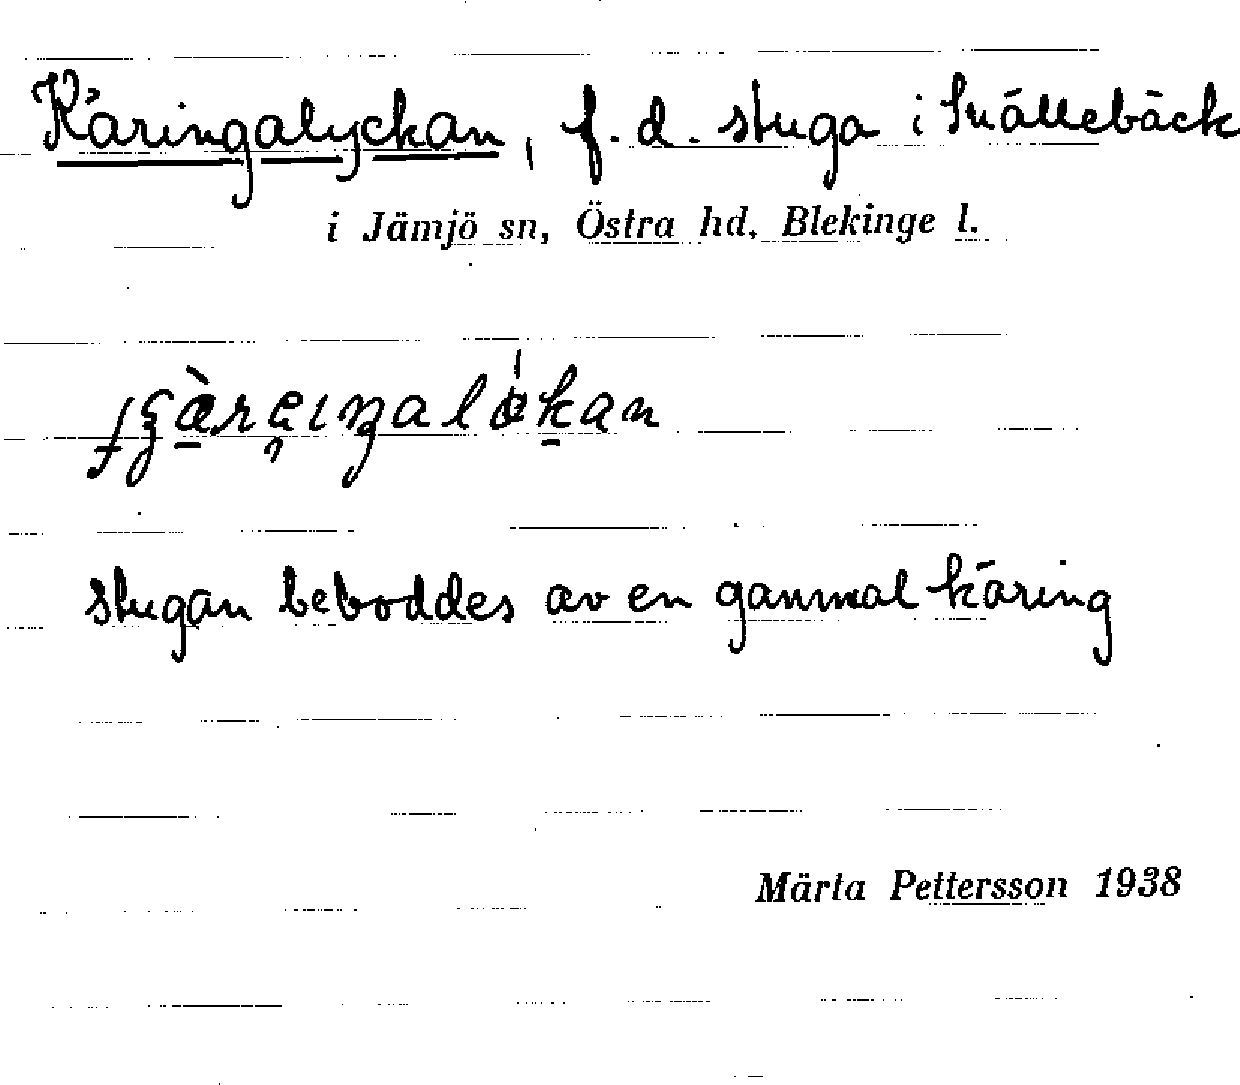 Käringalyckan, f. d. stuga i Snällebäck
i Jämjö sn, Östra hd. Blekinge l.
stugan beboddes av en gammal käring
Märta Pettersson 1938